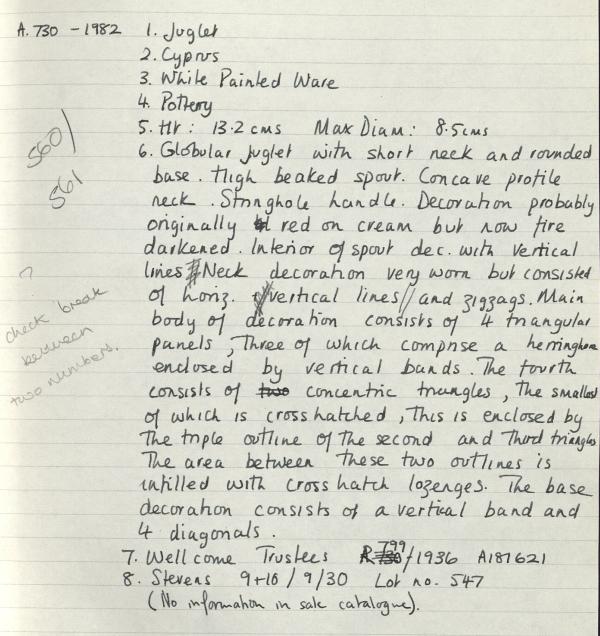 A. 730 - 1982 1. Juglet
2. Cyprus
3. White Painted Ware
4. Pottery
5. Ht: 13.2 cms Max Diam: 8.5cms
6. Globular juglet with short neck and rounded
base. High beaked spout. Concave profile
neck. Stringhole handle. Decoration probably
originally red on cream but now fire
darkened. Interior of spout dec. with vertical
lines // Neck decoration very worn but consisted
of horiz. vertical lines // and zigzags. Main
body of decoration consists of 4 triangular
panels, Three of which comprise a herringbone
enclosed by vertical bands. The fourth
consists of two concentric triangles, The smallest
of which is cross hatched, This is enclosed by
The triple outline of the second and Third triangles
The area between these two outlines is
infilled with cross hatch lozenges. The base
decoration consists of a vertical band and
4 diagonals.
7. Wellcome Trustees R 730 799/1936 A187621
8. Stevens 9+10 / 9/30 Lot no. 547
(No information in sale catalogue).
560/
561
?
check break
between
two numbers.